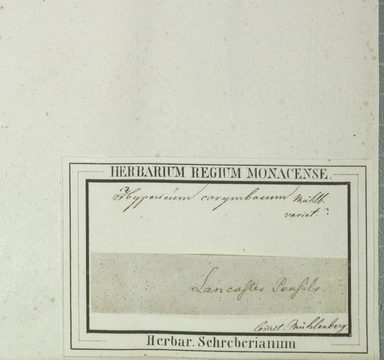 HERBARIUM REGIUM MONACENSE.
Hypericum corymbosum Mühlb.
variet.
Lancaster Pensilv.
comst. Mühlenberg
Herbar. Schreberianum